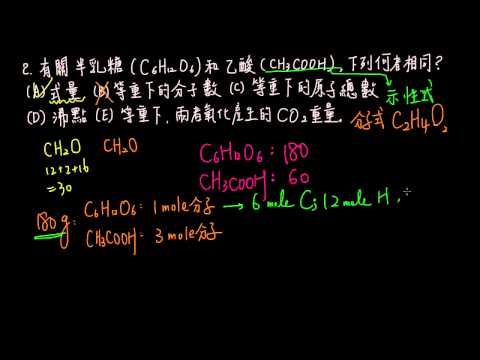 2. 有關半乳糖 (C6H12O6) 和乙酸 (CH3COOH), 下列何者相同?
(A) 式量 (B) 等重下的分子數 (C) 等重下的原子總數 示性式
(D) 沸點 (E) 等重下, 兩者氧化產生的CO2重量. 分子式 C2H4O2
CH2O CH2O
12+2+16
=30
C6H12O6 : 180
CH3COOH : 60
180g: C6H12O6: 1mole分子 → 6 mole C; 12 mole H,
CH3COOH: 3mole分子